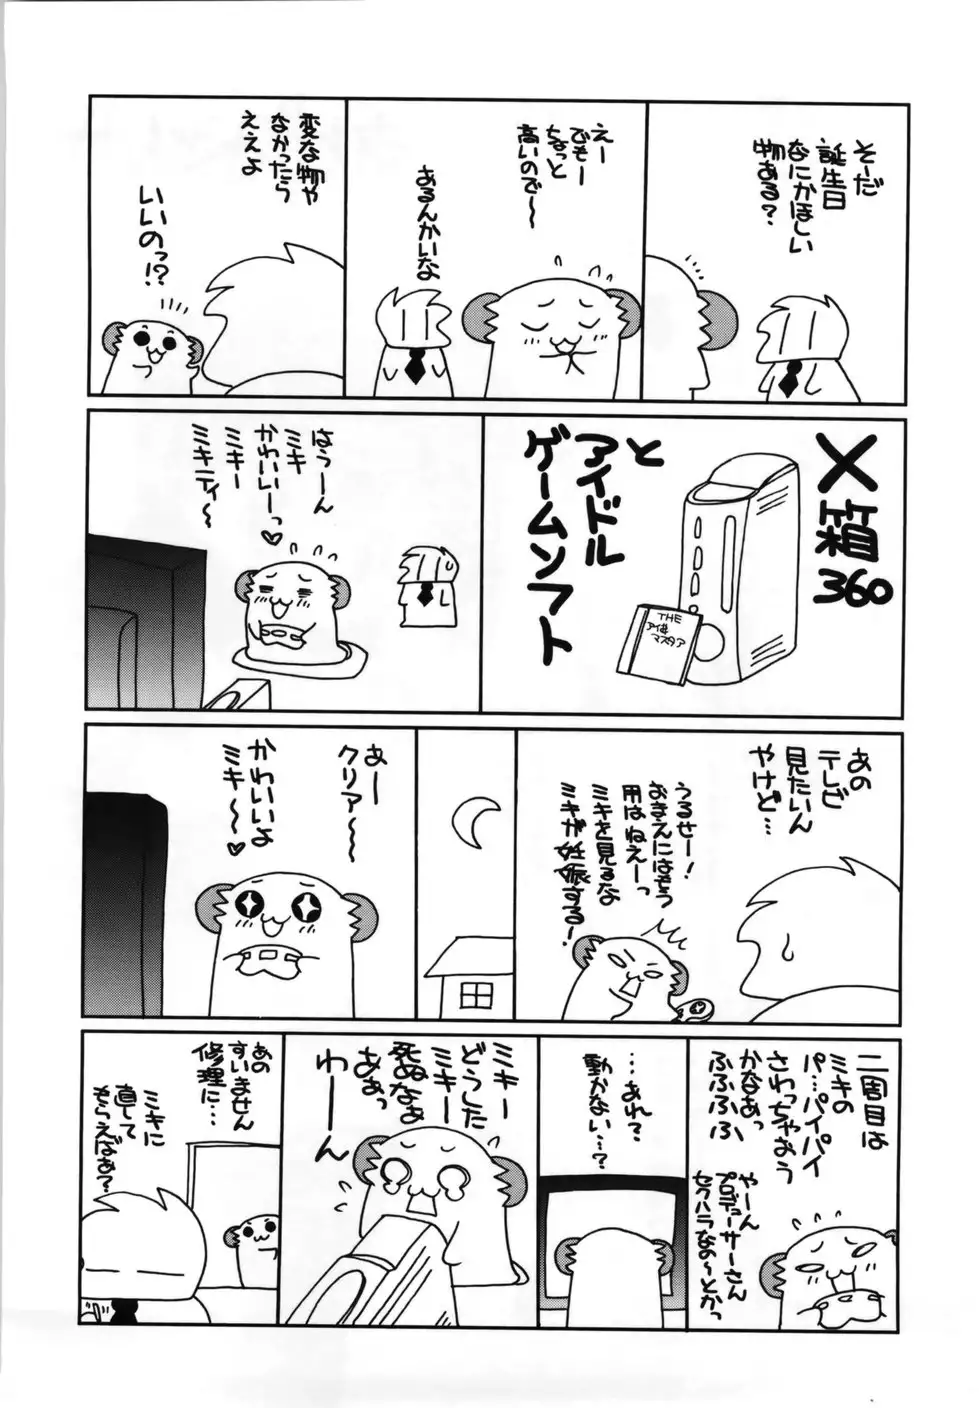 そーだ
誕生日
なにかほしい
物ある?
えー
でもー
ちょっと
高いので〜
あるんかいな
変な物や
なかったら
ええよ
いいのっ!?
X箱
360
と
アイドル
ゲームソフト
THE
アイ
マスタア
はうーん
ミキ
かわいいーっ♥
ミキー
ミキティ〜
あの
テレビ
見たいん
やけど…
うるせー!
おまえにはもう
用はねえーっ
ミキを見るな
ミキが妊娠する!
あー
クリア〜〜
かわいいよ
ミキ〜〜♥
二周目は
ミキの
パ…パイパイ
さわっちゃおう
かなあっ
ふふふふふ
やーん
プロデューサーさん
セクハラなの〜とかっ
…あれ?
動かない…?
ミキー
どうした
ミキー
死ぬなぁ
あぁっ
わーん
あの
すいません
修理に…
ミキに
直して
もらえばぁ?